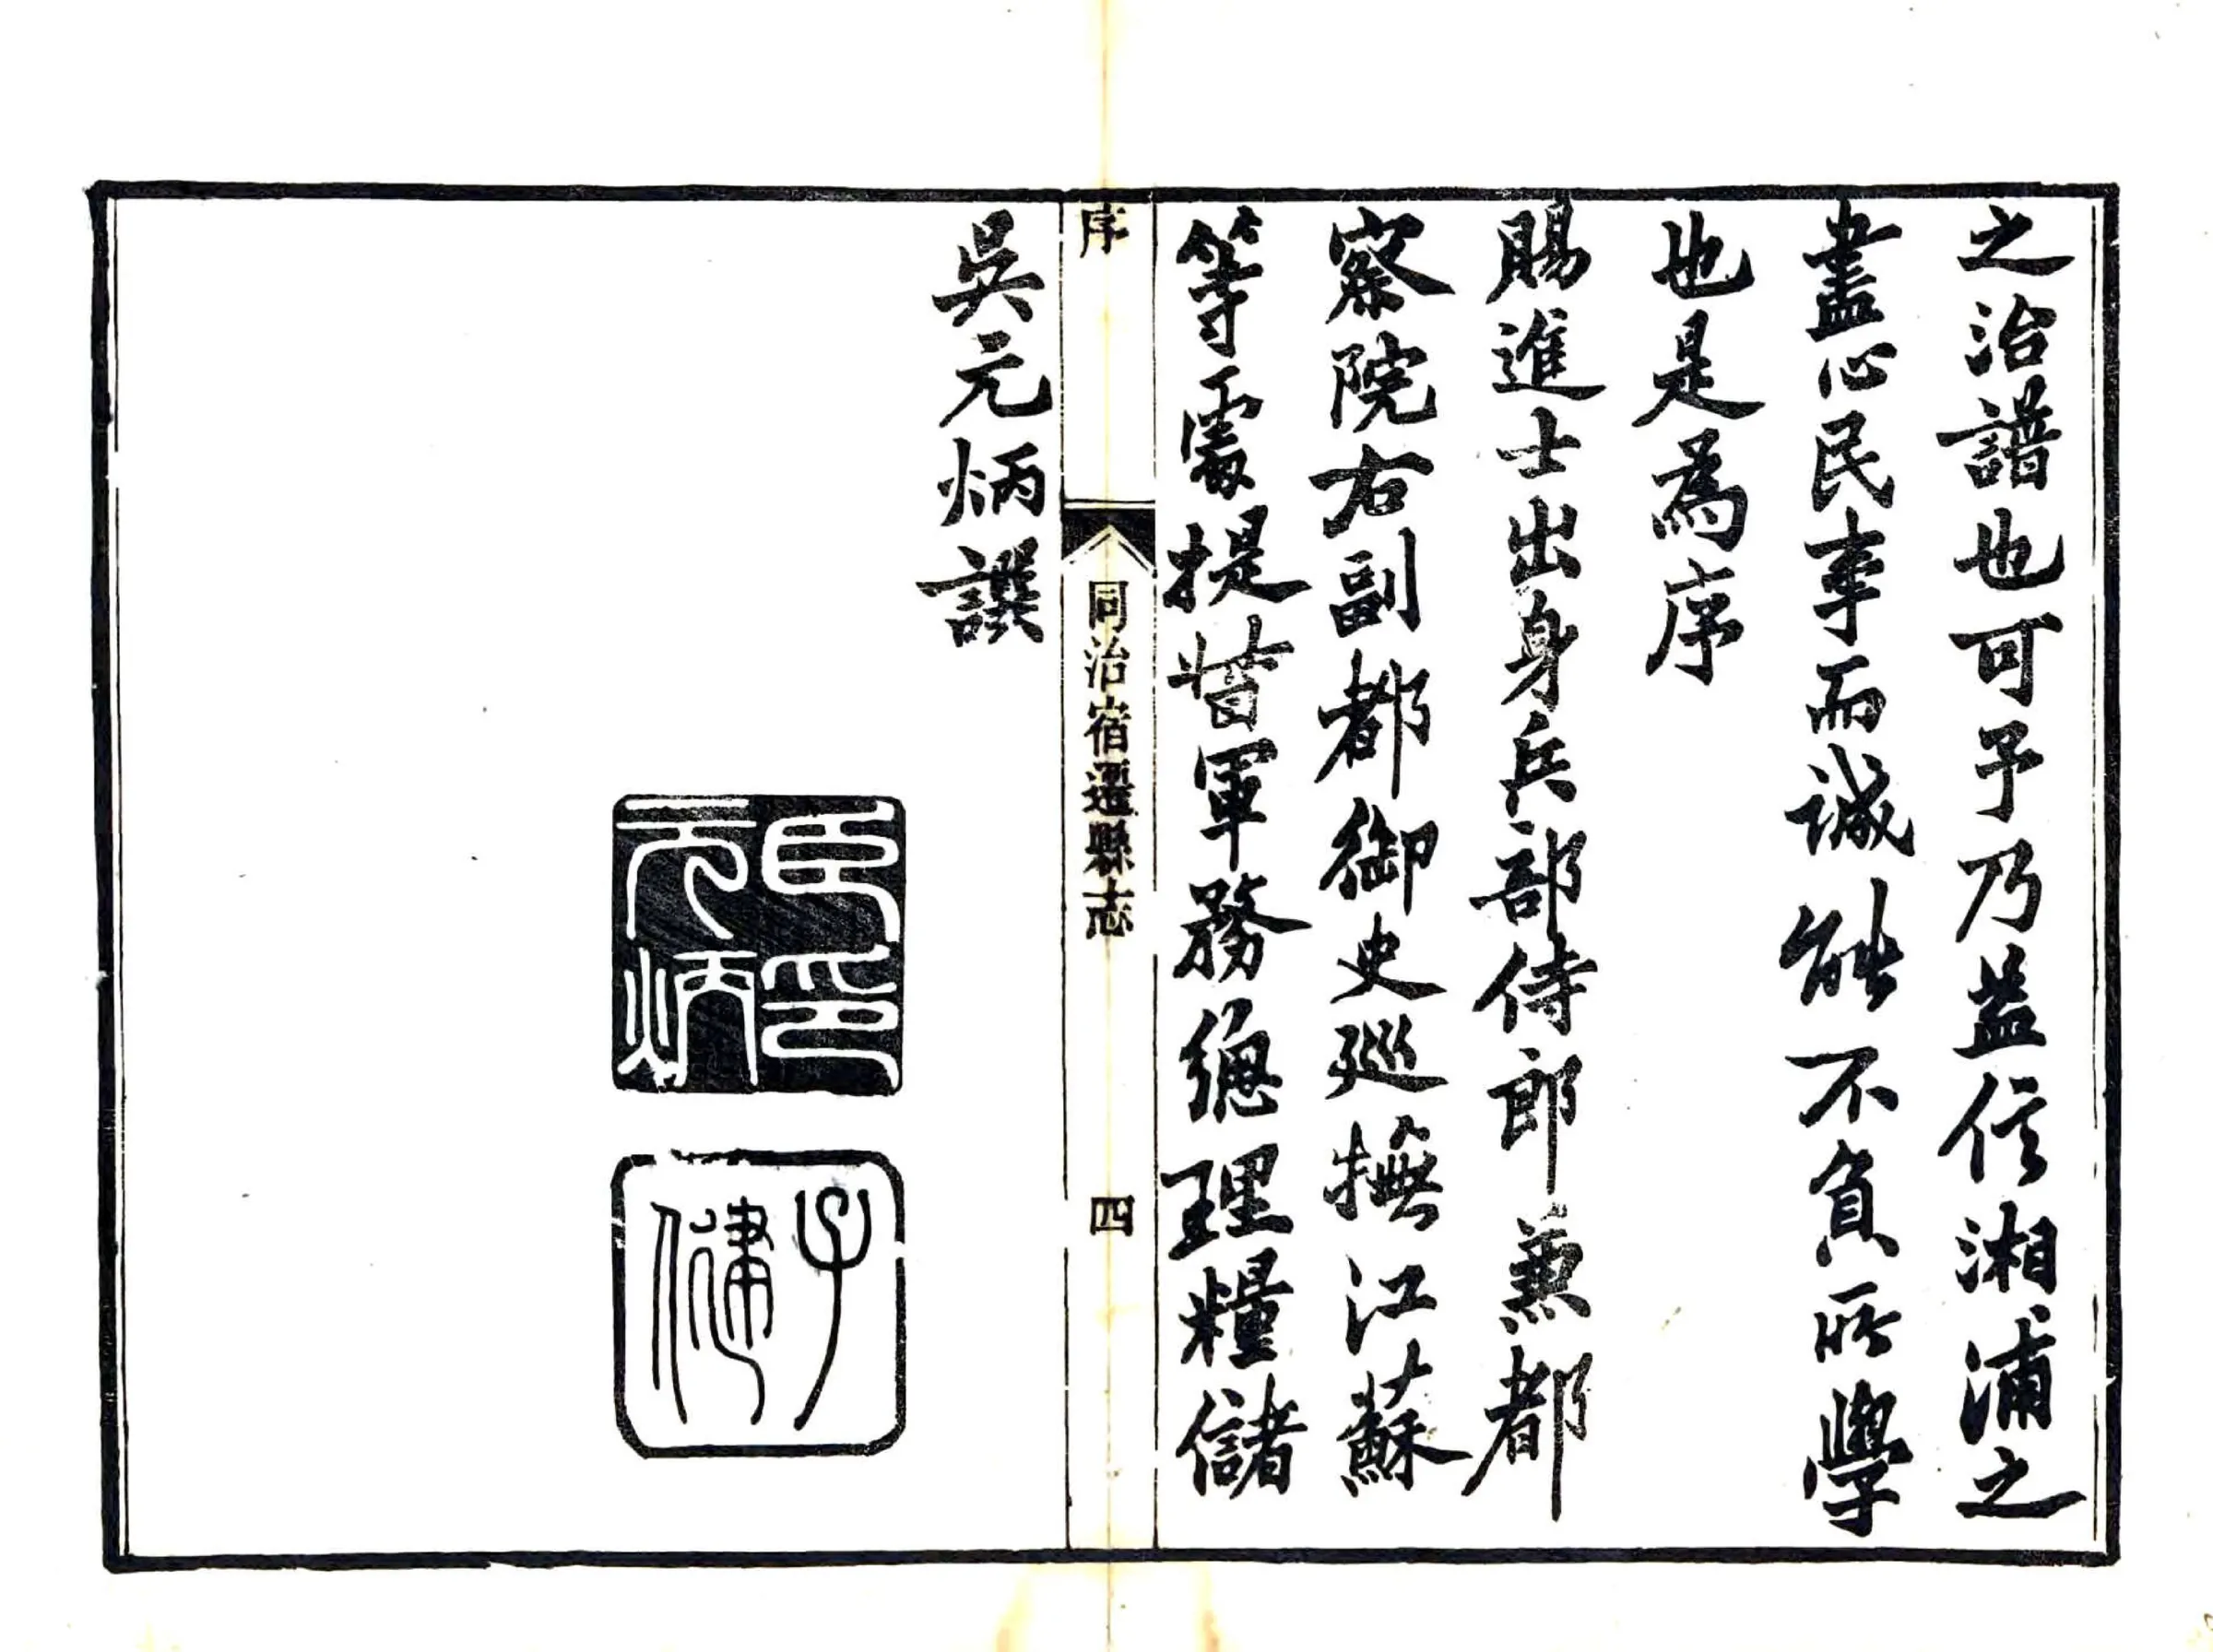 之治譜也可予乃益信湘浦之
盡心民事而誠能不負所學
也是為序
賜進士出身兵部侍郎兼都
察院右副都御史巡撫江蘇
等處提督軍務總理糧儲
序
同治宿遷縣志
四
吳元炳譔
臣印元炳
子健